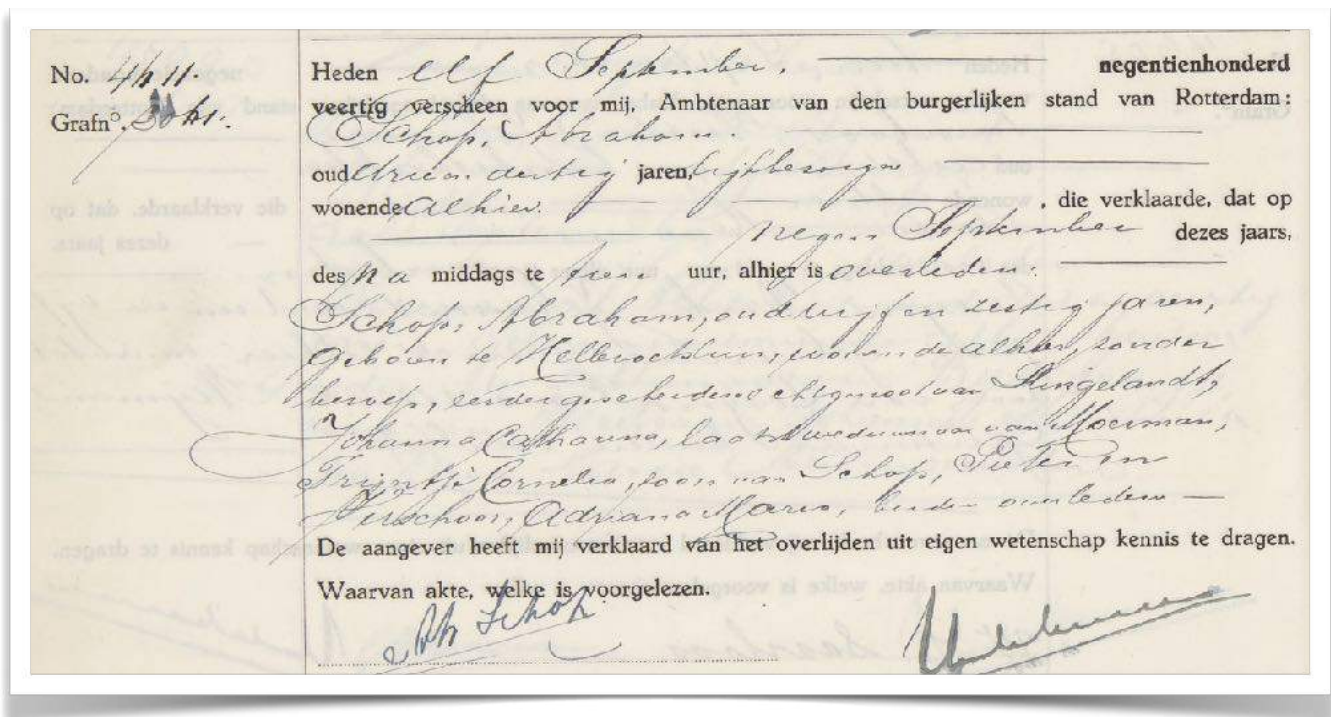 No.
Grafno.
Heden Elf September, negentienhonderd
veertig verscheen voor mij, Ambtenaar van den burgerlijken stand van Rotterdam:
Schop, Abraham.
oud drie en dertig jaren, lijkbezorger
wonende alhier. , die verklaarde, dat op
negen September dezes jaars,
des na middags te uur, alhier is overleden:
Schop, Abraham, oud vijf en zestig jaren,
geboren te Hellevoetsluis, wonende alhier, zonder
beroep, eerder gescheiden echtgenoot van Ringelandt,
Johanna Catharina, laatst weduwnaar van Moerman,
Trijntje Cornelia, zoon van Schop, Pieter en
Verschoor, Adriana Maria, beiden overleden
De aangever heeft mij verklaard van het overlijden uit eigen wetenschap kennis te dragen.
Waarvan akte, welke is voorgelezen.
Ab Schop